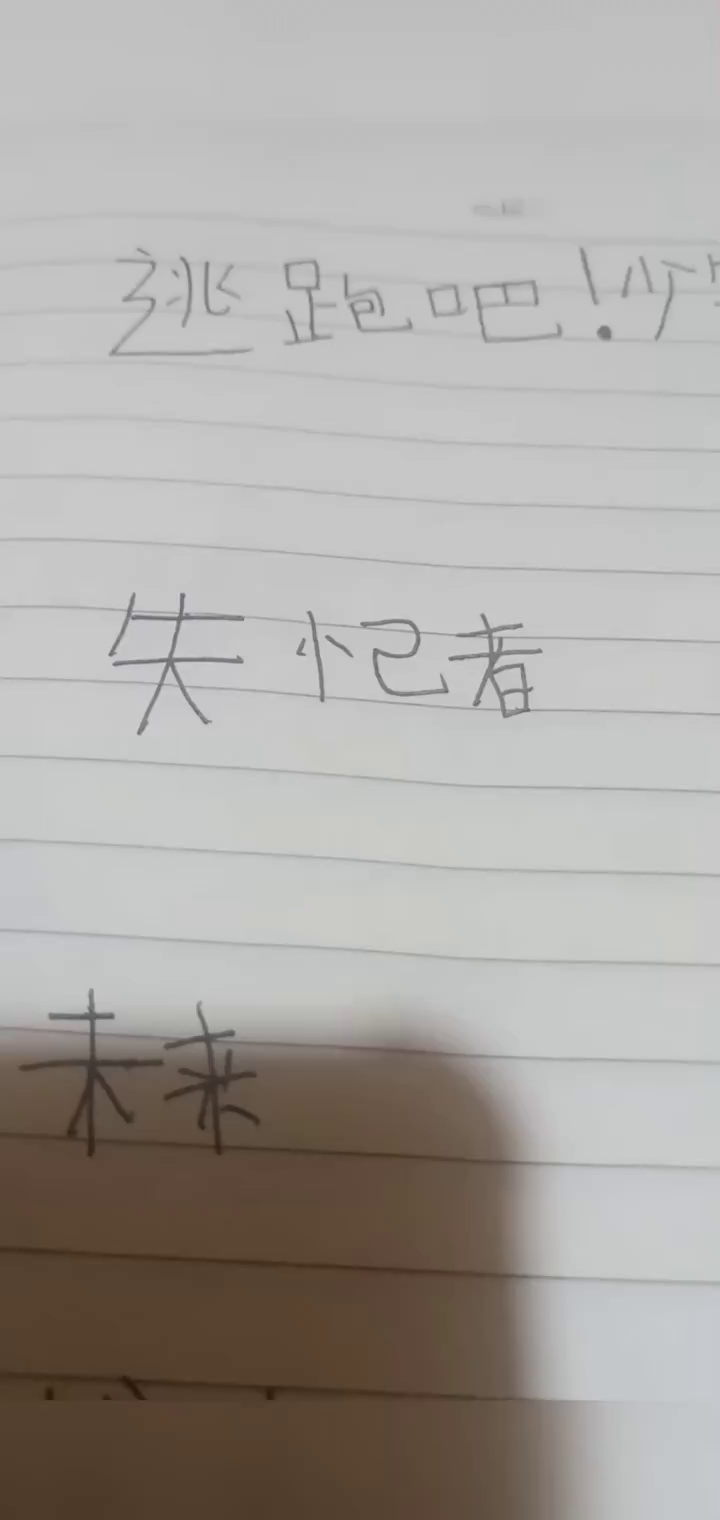 逃跑吧!少
失忆者
未来